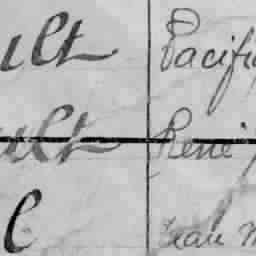 ult Pacifi
ult René
l Jean M